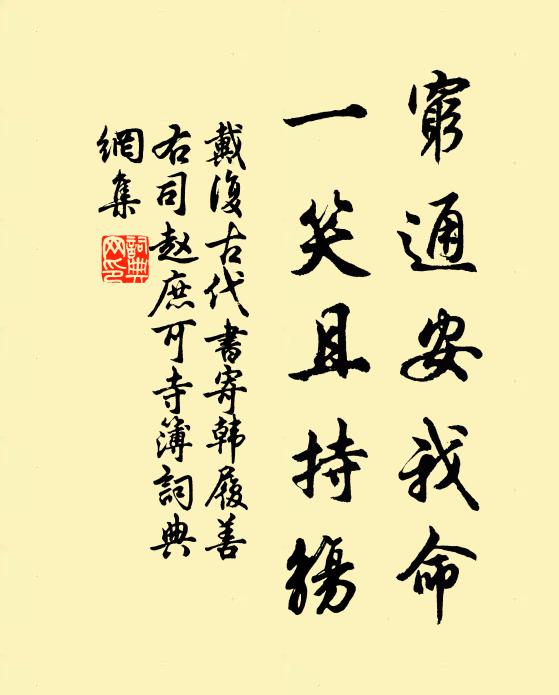 窮通安我命
一笑且持觴
戴復古代書寄韩履善
右司赵庶可寺簿詞典
網集
詞典網印